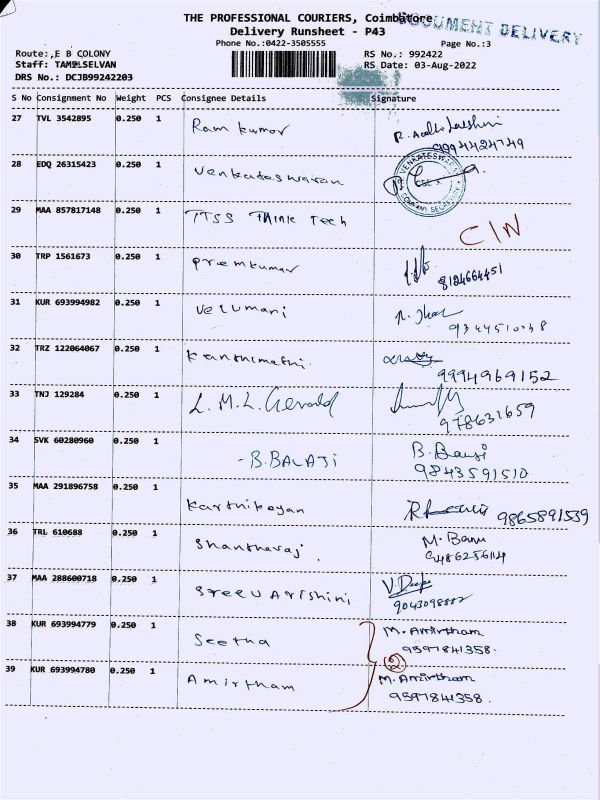 THE PROFESSIONAL COURIERS, Coimbatore
DOCUMENT DELIVERY
Delivery Runsheet - P43
Phone No.:0422-3505555 Page No.:3
Route:,E B COLONY RS No.: 992422
Staff: TAMILSELVAN RS Date: 03-Aug-2022
DRS No.: DCJB99242203
S No Consignment No Weight PCS Consignee Details Signature
27 TVL 3542895 0.250 1 Ram kumar
9994424749
28 EDQ 26315423 0.250 1 Venkateswaran
29 MAA 857817148 0.250 1 TTSS Think Tech C/N
30 TRP 1561673 0.250 1 Premkumar
8124664451
31 KUR 693994982 0.250 1 Velumani
32 TRZ 122064067 0.250 1 Kanthimathi.
9994969152
33 TNJ 129284 0.250 1 L. M. L. Gerald
978631659
34 SVK 60280960 0.250 1 - B. BALAJI B. Balaji
9843591510
35 MAA 291896758 0.250 1 Karthikeyan 9865891539
36 TRL 610688 0.250 1 Shantharaj. M. Banu
37 MAA 288600718 0.250 1 Sree Varishini V. Deepa
38 KUR 693994779 0.250 1 Seetha M. Amirtham
9597841358.
2
39 KUR 693994780 0.250 1 Amirtham M. Amirtham
9597841358.